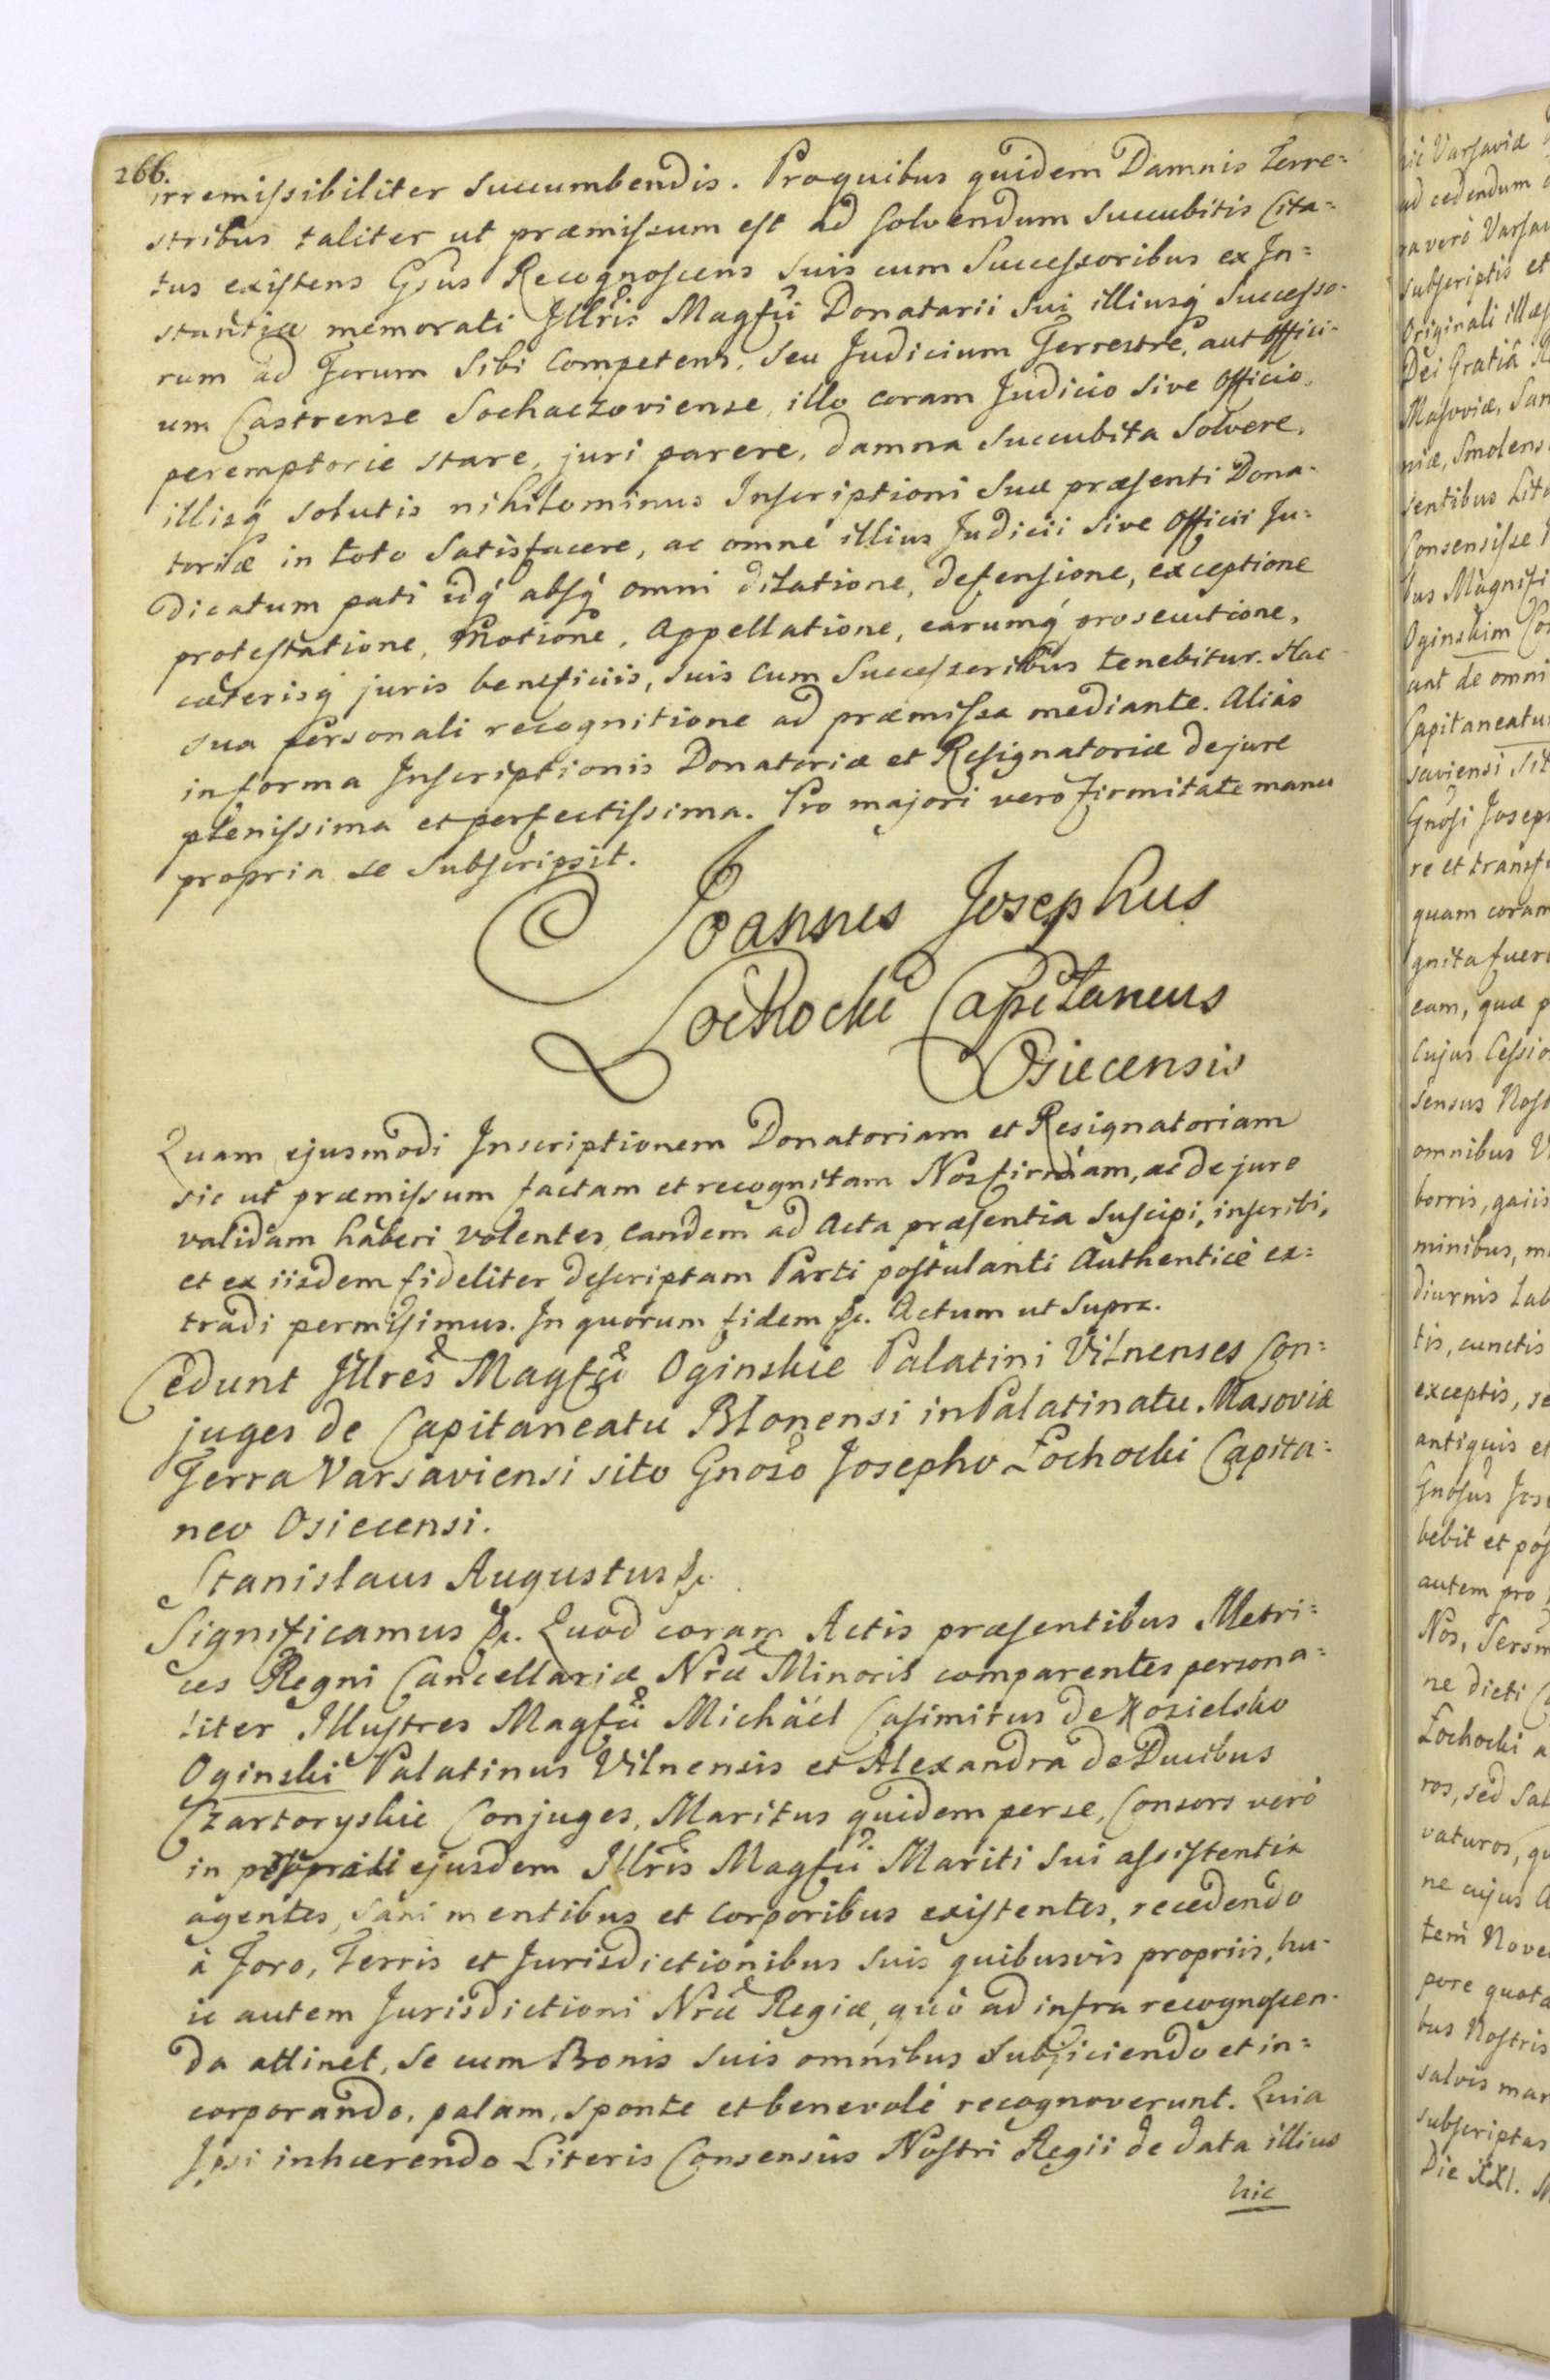 266.
irremissibiliter succumbendis. Pro quibus quidem Damnis terre=
stribus taliter ut præmissum est ad solvendum succubitis Cita=
tus existens Gsus Recognoscens suis cum Successoribus ex In=
stantia memorati Illris Magfci Donatarii sui illiusq Successo-
rum ad Forum sibi Competens, seu Judicium Terrestre, aut Offici-
um Castrense Sochaczoviense, illo coram Judicio sive Officio,
peremptorie stare, juri parere, damna succubita solvere,
illisq solutis nihilominus Inscriptioni suæ præsenti Dona-
toriæ in toto satisfacere, ac omne illius Judicii sive Officii Ju=
dicatum pati idq absq omni dilatione, defensione, exceptione
protestatione, Motione, Appellatione, earumq prosecutione,
cæterisq juris beneficiis, suis cum Successoribus tenebitur. Hac
sua personali recognitione ad præmissa mediante. Aliàs
in forma Inscriptionis Donatoriæ et Resignatoriæ de jure
plenissima et perfectissima. Pro majori vero firmitate manu
propria se subscripsit.
Joannes Josephus
Łochocki Capitaneus
Osiecensis
Quam ejusmodi Inscriptionem Donatoriam et Resignatoriam
sic ut præmissum factam et recognitam Nos firmam, ac de jure
validam haberi volentes, eandem ad Acta præsentia suscipi, inscribi,
et ex iisdem fideliter descriptam Parti postulanti Authenticè ex=
tradi permisimus. In quorum fidem &c. Actum ut supra.
Cedunt Illres Magfci Oginskie Palatini Vilnenses Con=
juges de Capitaneatu Blonensi in Palatinatu Masoviæ
Terra Varsaviensi sito Gnoso Josepho Łochocki Capita=
neo Osiecensi.
Stanislaus Augustus &c.
Significamus &c. Quod coram Actis præsentibus Metri=
ces Regni Cancellariæ Nræ Minoris comparentes persona=
liter Illustres Magfci Michäel Casimirus de Kozielsko
Oginski Palatinus Vilnensis et Alexandra de Ducibus
Czartoryskie Conjuges, Maritus quidem per se, Consors verò
in ejusdem Illris Magfci Mariti sui assistentia
agentes, sani mentibus et corporibus existentes, recedendo
à Foro, Terris et Jurisdictionibus suis quibusvis propriis, hu-
ic autem Jurisdictioni Nræ Regiæ, quò ad infra recognoscen-
da attinet, se cum Bonis suis omnibus subjiciendo et in=
corporando, palam, sponte et benevolè recognoverunt. Quia
Ipsi inhærendo Literis Consensûs Nostri Regii de data illius
hic
hic Varsaviæ
ad cedendum
ra verò Varsav
subscriptis et
Originali illæs
Dei Gratiâ
Masoviæ, Sam
niæ, Smolens
sentibus Lite
Consensisse
bus Magnifi
Oginskim Con
aut de omni
Capitaneatu
saviensi sit
Gnosi Joseph
re et transf
quam coram
gnita fueri
eam, quæ p
Cujus Cessio
sensus Nost
omnibus
borris, gaiis
minibus, m
diurnis lab
tis, cunctis
exceptis, se
antiquis et
Gnosus Jos
bebit et pos
autem pro
Nos, Sersm
ne dicti
Łochocki a
ros, sed sal
vaturos, qu
ne cujus
tem Nove
pore quota
bus Nostris
salvis man
subscriptas
Die XXI. M